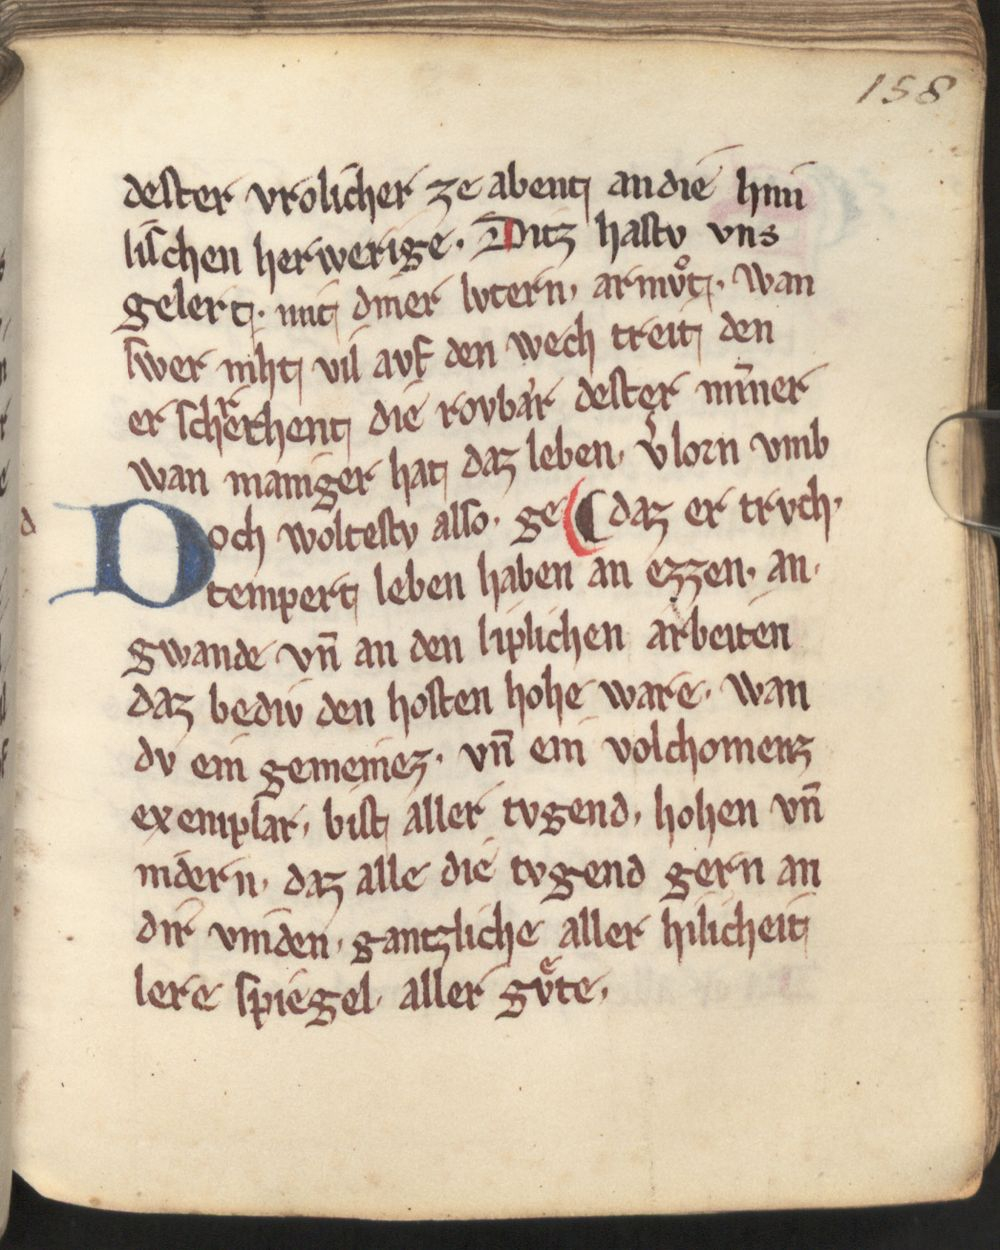 158
dester vrolicher ze abent an die himi
lischen herwerige. Ditz hastv vns
gelert. mit diner lvtern, armvͦt. Wan
swer niht vil avf den wech treit den
er schrechent die rovbar dester minner
wan maniger hat daz leben, vlorn vmb
Doch woltestv also. ge daz er trvch.
tempert leben haben an ezzen. an.
gwande vn̄ an den liplichen arbeiten
daz bediv den hosten hohe ware. Wan
dv ein gemeinez. vn̄ ein volchomenz
exemplar, bist aller tvgend, hohen vn̄
nidern, daz alle die tvgend gern an
dir vinden, gantzliche aller hilicheit
lere spiegel. aller gvͤte.